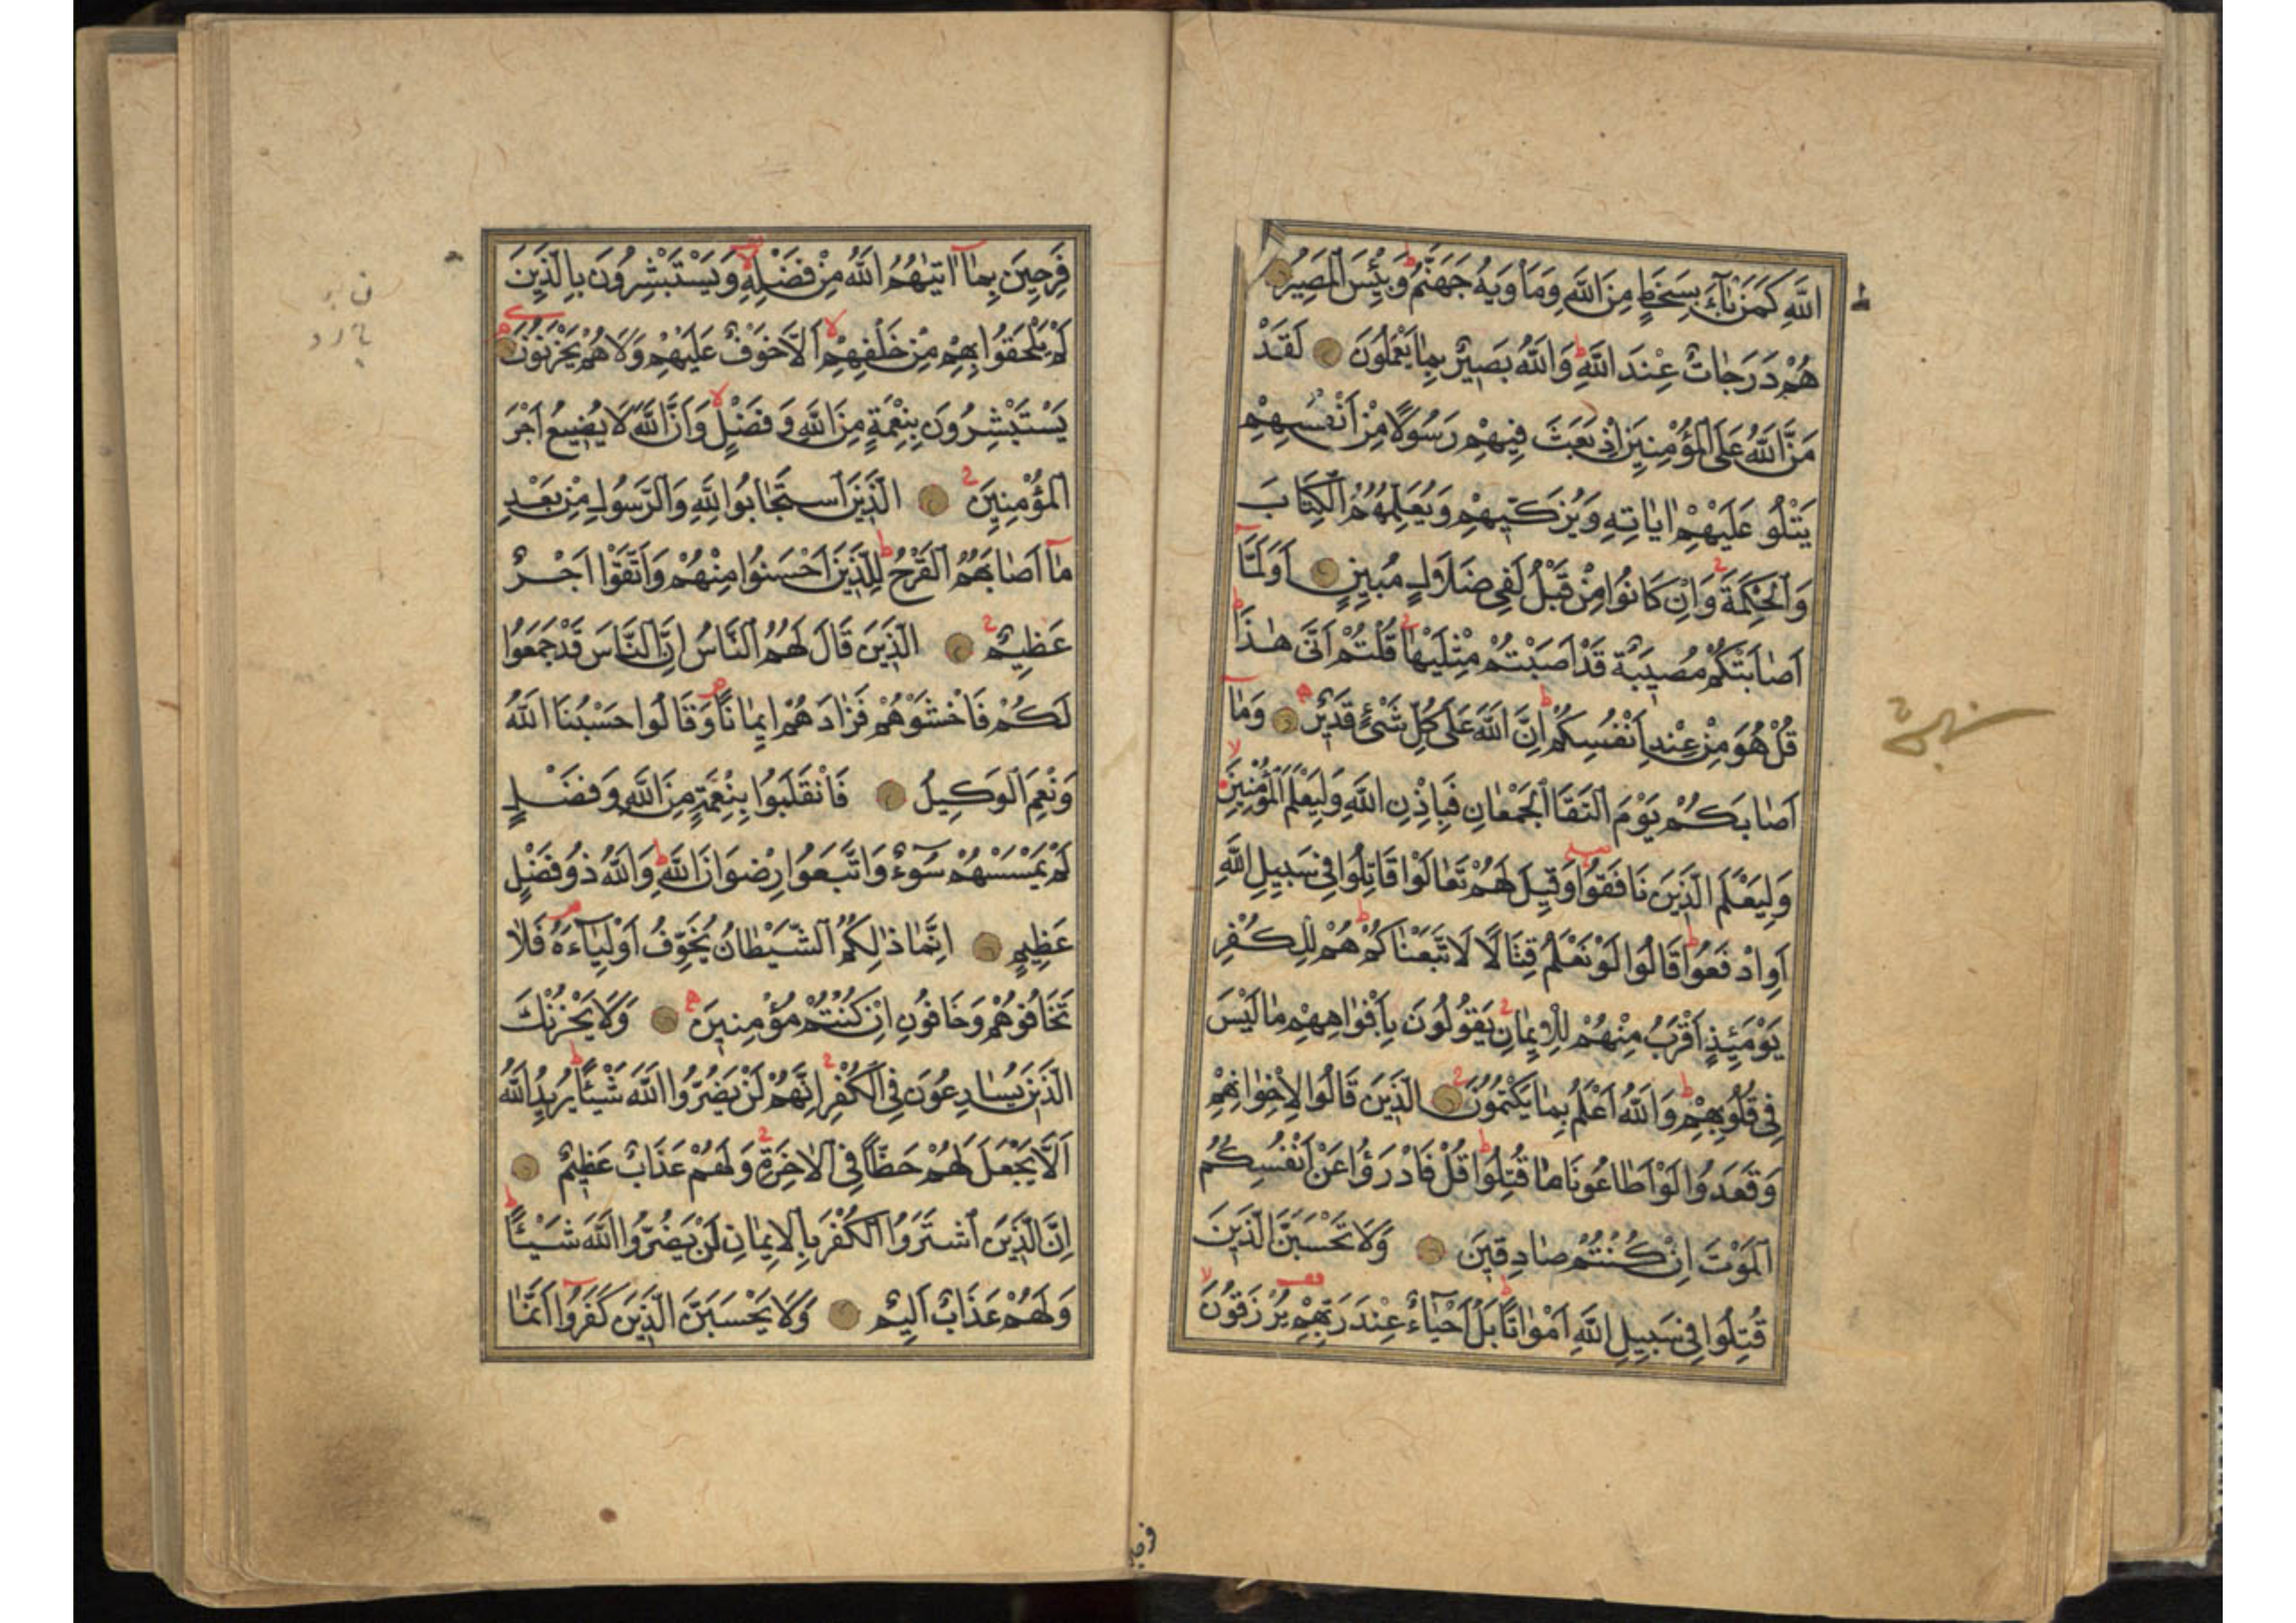 اللَّهِ كَمَنْ بَآءَ بِسَخَطٍ مِنَ اللَّهِ وَمَأْوٰيهُ جَهَنَّمُ وَبِئْسَ الْمَصِيرُ
هُمْ دَرَجَاتٌ عِنْدَ اللَّهِ وَاللَّهُ بَصِيرٌ بِمَا يَعْمَلُونَ لَقَدْ
مَنَّ اللَّهُ عَلَى الْمُؤْمِنِينَ اِذْ بَعَثَ فِيهِمْ رَسُولًا مِنْ اَنْفُسِهِمْ
يَتْلُو عَلَيْهِمْ اٰيَاتِهِ وَيُزَكّٖيهِمْ وَيُعَلِّمُهُمُ الْكِتَابَ
وَالْحِكْمَةَ وَاِنْ كَانُوا مِنْ قَبْلُ لَفِى ضَلَالٍ مُبِينٍ اَوَلَمَّآ
اَصَابَتْكُمْ مُصِيبَةٌ قَدْ اَصَبْتُمْ مِثْلَيْهَا قُلْتُمْ اَنّٰى هٰذَا
قُلْ هُوَ مِنْ عِنْدِ اَنْفُسِكُمْ اِنَّ اللَّهَ عَلٰى كُلِّ شَىْءٍ قَدِيرٌ وَمَآ
اَصَابَكُمْ يَوْمَ الْتَقَا الْجَمْعَانِ فَبِاِذْنِ اللَّهِ وَلِيَعْلَمَ الْمُؤْمِنِينَ
وَلِيَعْلَمَ الَّذِينَ نَافَقُوا وَقِيلَ لَهُمْ تَعَالَوْا قَاتِلُوا فِى سَبِيلِ اللَّهِ
اَوِ ادْفَعُوا قَالُوا لَوْ نَعْلَمُ قِتَالًا لَاتَّبَعْنَاكُمْ هُمْ لِلْكُفْرِ
يَوْمَئِذٍ اَقْرَبُ مِنْهُمْ لِلْاِيمَانِ يَقُولُونَ بِاَفْوَاهِهِمْ مَا لَيْسَ
فِى قُلُوبِهِمْ وَاللَّهُ اَعْلَمُ بِمَا يَكْتُمُونَ الَّذِينَ قَالُوا لِاِخْوَانِهِمْ
وَقَعَدُوا لَوْ اَطَاعُونَا مَا قُتِلُوا قُلْ فَادْرَؤُا عَنْ اَنْفُسِكُمُ
الْمَوْتَ اِنْ كُنْتُمْ صَادِقِينَ وَلَا تَحْسَبَنَّ الَّذِينَ
قُتِلُوا فِى سَبِيلِ اللَّهِ اَمْوَاتًا بَلْ اَحْيَآءٌ عِنْدَ رَبِّهِمْ يُرْزَقُونَ
فَرِحِينَ بِمَآ اٰتٰيهُمُ اللَّهُ مِنْ فَضْلِهِ وَيَسْتَبْشِرُونَ بِالَّذِينَ
لَمْ يَلْحَقُوا بِهِمْ مِنْ خَلْفِهِمْ اَلَّا خَوْفٌ عَلَيْهِمْ وَلَا هُمْ يَحْزَنُونَ
يَسْتَبْشِرُونَ بِنِعْمَةٍ مِنَ اللَّهِ وَفَضْلٍ وَاَنَّ اللَّهَ لَا يُضِيعُ اَجْرَ
الْمُؤْمِنِينَ الَّذِينَ اسْتَجَابُوا لِلَّهِ وَالرَّسُولِ مِنْ بَعْدِ
مَآ اَصَابَهُمُ الْقَرْحُ لِلَّذِينَ اَحْسَنُوا مِنْهُمْ وَاتَّقَوْا اَجْرٌ
عَظِيمٌ الَّذِينَ قَالَ لَهُمُ النَّاسُ اِنَّ النَّاسَ قَدْ جَمَعُوا
لَكُمْ فَاخْشَوْهُمْ فَزَادَهُمْ اِيمَانًا وَقَالُوا حَسْبُنَا اللَّهُ
وَنِعْمَ الْوَكِيلُ فَانْقَلَبُوا بِنِعْمَةٍ مِنَ اللَّهِ وَفَضْلٍ
لَمْ يَمْسَسْهُمْ سُوٓءٌ وَاتَّبَعُوا رِضْوَانَ اللَّهِ وَاللَّهُ ذُو فَضْلٍ
عَظِيمٍ اِنَّمَا ذٰلِكُمُ الشَّيْطَانُ يُخَوِّفُ اَوْلِيَآءَهُ فَلَا
تَخَافُوهُمْ وَخَافُونِ اِنْ كُنْتُمْ مُؤْمِنِينَ وَلَا يَحْزُنْكَ
الَّذِينَ يُسَارِعُونَ فِى الْكُفْرِ اِنَّهُمْ لَنْ يَضُرُّوا اللَّهَ شَيْئًا يُرِيدُ اللَّهُ
اَلَّا يَجْعَلَ لَهُمْ حَظًّا فِى الْاٰخِرَةِ وَلَهُمْ عَذَابٌ عَظِيمٌ
اِنَّ الَّذِينَ اشْتَرَوُا الْكُفْرَ بِالْاِيمَانِ لَنْ يَضُرُّوا اللَّهَ شَيْئًا
وَلَهُمْ عَذَابٌ اَلِيمٌ وَلَا يَحْسَبَنَّ الَّذِينَ كَفَرُوا اَنَّمَا